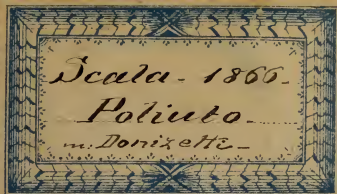 Scala - 1866 -
Poliuto -
m: Donizetti -